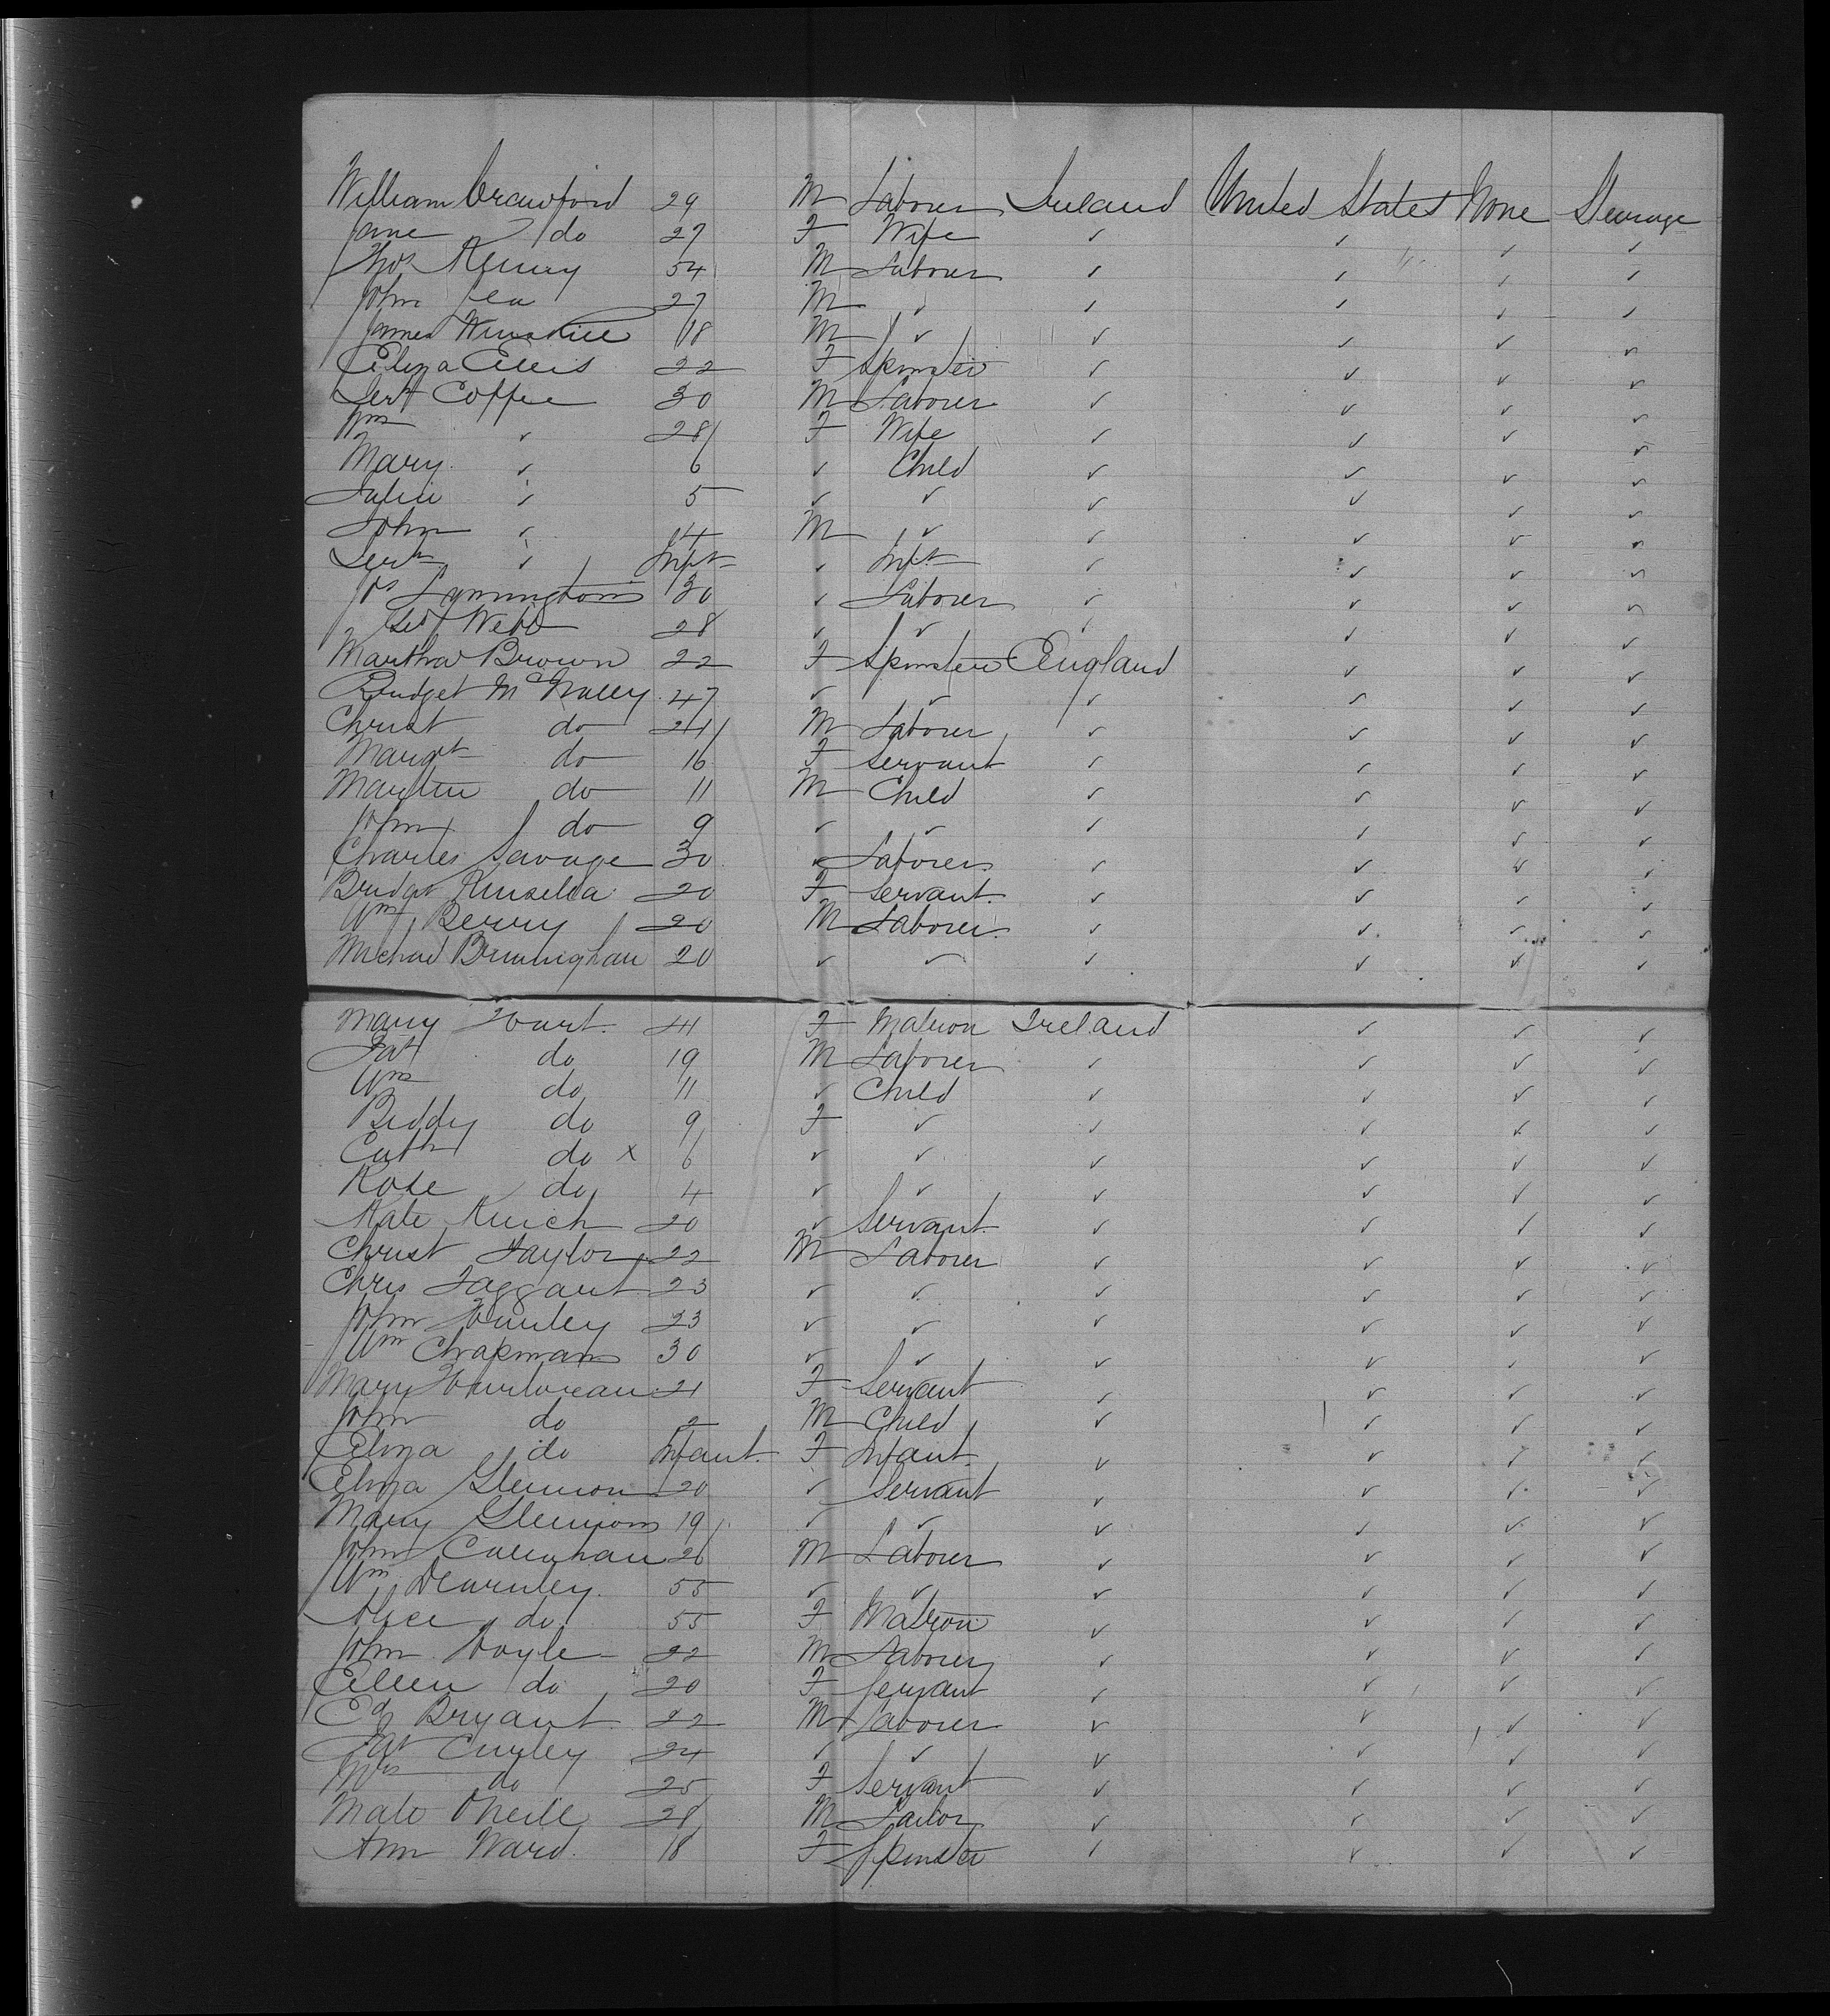 William Crawford 29 M Laborer Ireland United States None Steerage
Jane do 27 F Wife ✓ ✓ ✓ ✓
Thos 54 M Laborer ✓ ✓ ✓ ✓
John Lea 27 M ✓ ✓ ✓ ✓ ✓
James 18 M ✓ ✓ ✓ ✓ ✓
Eliza Ellis 22 F Spinster ✓ ✓ ✓ ✓
Coffee 30 M Laborer ✓ ✓ ✓ ✓
✓ 28 F Wife ✓ ✓ ✓ ✓
Mary ✓ 6 ✓ Child ✓ ✓ ✓ ✓
Julia ✓ 5 ✓ ✓ ✓ ✓ ✓ ✓
John ✓ 4 M ✓ ✓ ✓ ✓ ✓
✓ Inft ✓ Inft ✓ ✓ ✓ ✓
Js Symington 30 ✓ Laborer ✓ ✓ ✓ ✓
Geo Webb 28 ✓ ✓ ✓ ✓ ✓ ✓
Martha Brown 22 F Spinster England ✓ ✓ ✓
Bridget McNally 47 ✓ ✓ ✓ ✓ ✓ ✓
Christ do 24 M Laborer ✓ ✓ ✓ ✓
Margt do 16 F Servant ✓ ✓ ✓ ✓
Martin do 11 M Child ✓ ✓ ✓ ✓
John do 9 ✓ ✓ ✓ ✓ ✓ ✓
Charles Savage 30 ✓ Laborer ✓ ✓ ✓ ✓
Bridgt Kinsella 20 F Servant ✓ ✓ ✓ ✓
Wm Berry 20 M Laborer ✓ ✓ ✓ ✓
Michael Birmingham 20 ✓ ✓ ✓ ✓ ✓ ✓
Mary Hart 41 F Matron Ireland ✓ ✓ ✓
Pat do 19 M Laborer ✓ ✓ ✓ ✓
Wm do 11 ✓ Child ✓ ✓ ✓ ✓
Biddy do 9 F ✓ ✓ ✓ ✓ ✓
Cath do x 6 ✓ ✓ ✓ ✓ ✓ ✓
Rose do 4 ✓ ✓ ✓ ✓ ✓ ✓
Kate 20 ✓ Servant ✓ ✓ ✓ ✓
Christ Taylor 22 M Laborer ✓ ✓ ✓ ✓
Chris Taggart 23 ✓ ✓ ✓ ✓ ✓ ✓
John 23 ✓ ✓ ✓ ✓ ✓ ✓
Wm Chapman 30 ✓ ✓ ✓ ✓ ✓ ✓
Mary 21 F Servant ✓ ✓ ✓ ✓
John do 2 M Child ✓ ✓ ✓ ✓
Eliza do Infant F Infant ✓ ✓ ✓ ✓
Eliza Glennon 20 ✓ Servant ✓ ✓ ✓ ✓
Mary Glennon 19 ✓ ✓ ✓ ✓ ✓ ✓
John Callaghan 26 M Laborer ✓ ✓ ✓ ✓
Wm Dearnley 55 ✓ ✓ ✓ ✓ ✓ ✓
Alice do 55 F Matron ✓ ✓ ✓ ✓
John Doyle 22 M Laborer ✓ ✓ ✓ ✓
Ellen do 20 F Servant ✓ ✓ ✓ ✓
Ed Bryant 22 M Laborer ✓ ✓ ✓ ✓
Pat Curley 24 ✓ ✓ ✓ ✓ ✓ ✓
Mrs do 25 F Servant ✓ ✓ ✓ ✓
ONeill 28 M ✓ ✓ ✓ ✓
Ann Ward 18 F Spinster ✓ ✓ ✓ ✓